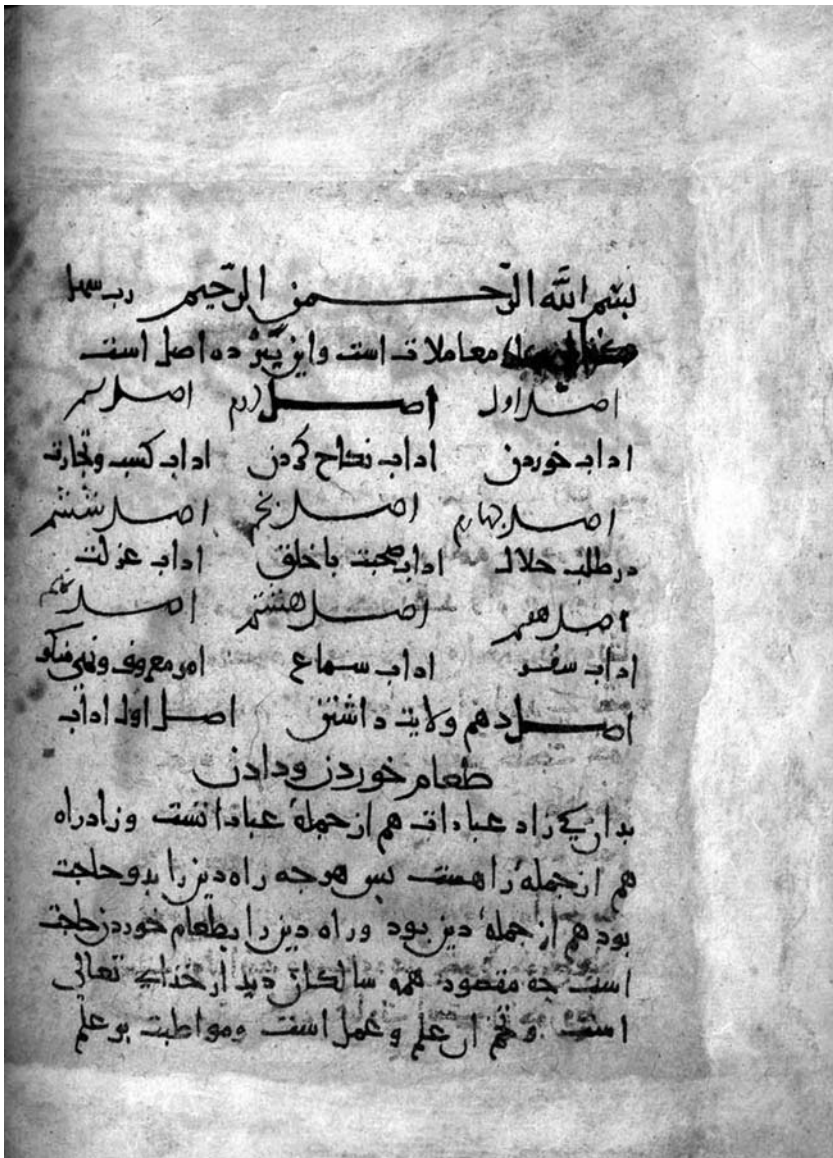 بسم الله الرحمن الرحيم رب سهل
معاملات است واين نيز ده اصل است
اصل اول اصل دوم اصل سيم
اداب خوردن اداب نكاح كردن اداب كسب وتجارت
اصل چهارم اصل پنجم اصل ششم
در طلب حلال اداب صحبت با خلق اداب عزلت
اصل هفتم اصل هشتم اصل نهم
اداب سفر اداب سماع امر معروف ونهى منكر
اصل دهم ولايت داشتن اصل اول اداب
طعام خوردن ودادن
بدان كى زاد عبادات هم از جملهٔ عباداتست وزاد راه
هم از جملهٔ راهست بس هرجه راه دين را بدو حاجت
بود هم از جملهٔ دين بود وراه دين را بطعام خوردن حاجت
است جه مقصود همه سالكان ديدار خداى تعالى
است وتخم ان علم وعمل است ومواظبت بر علم